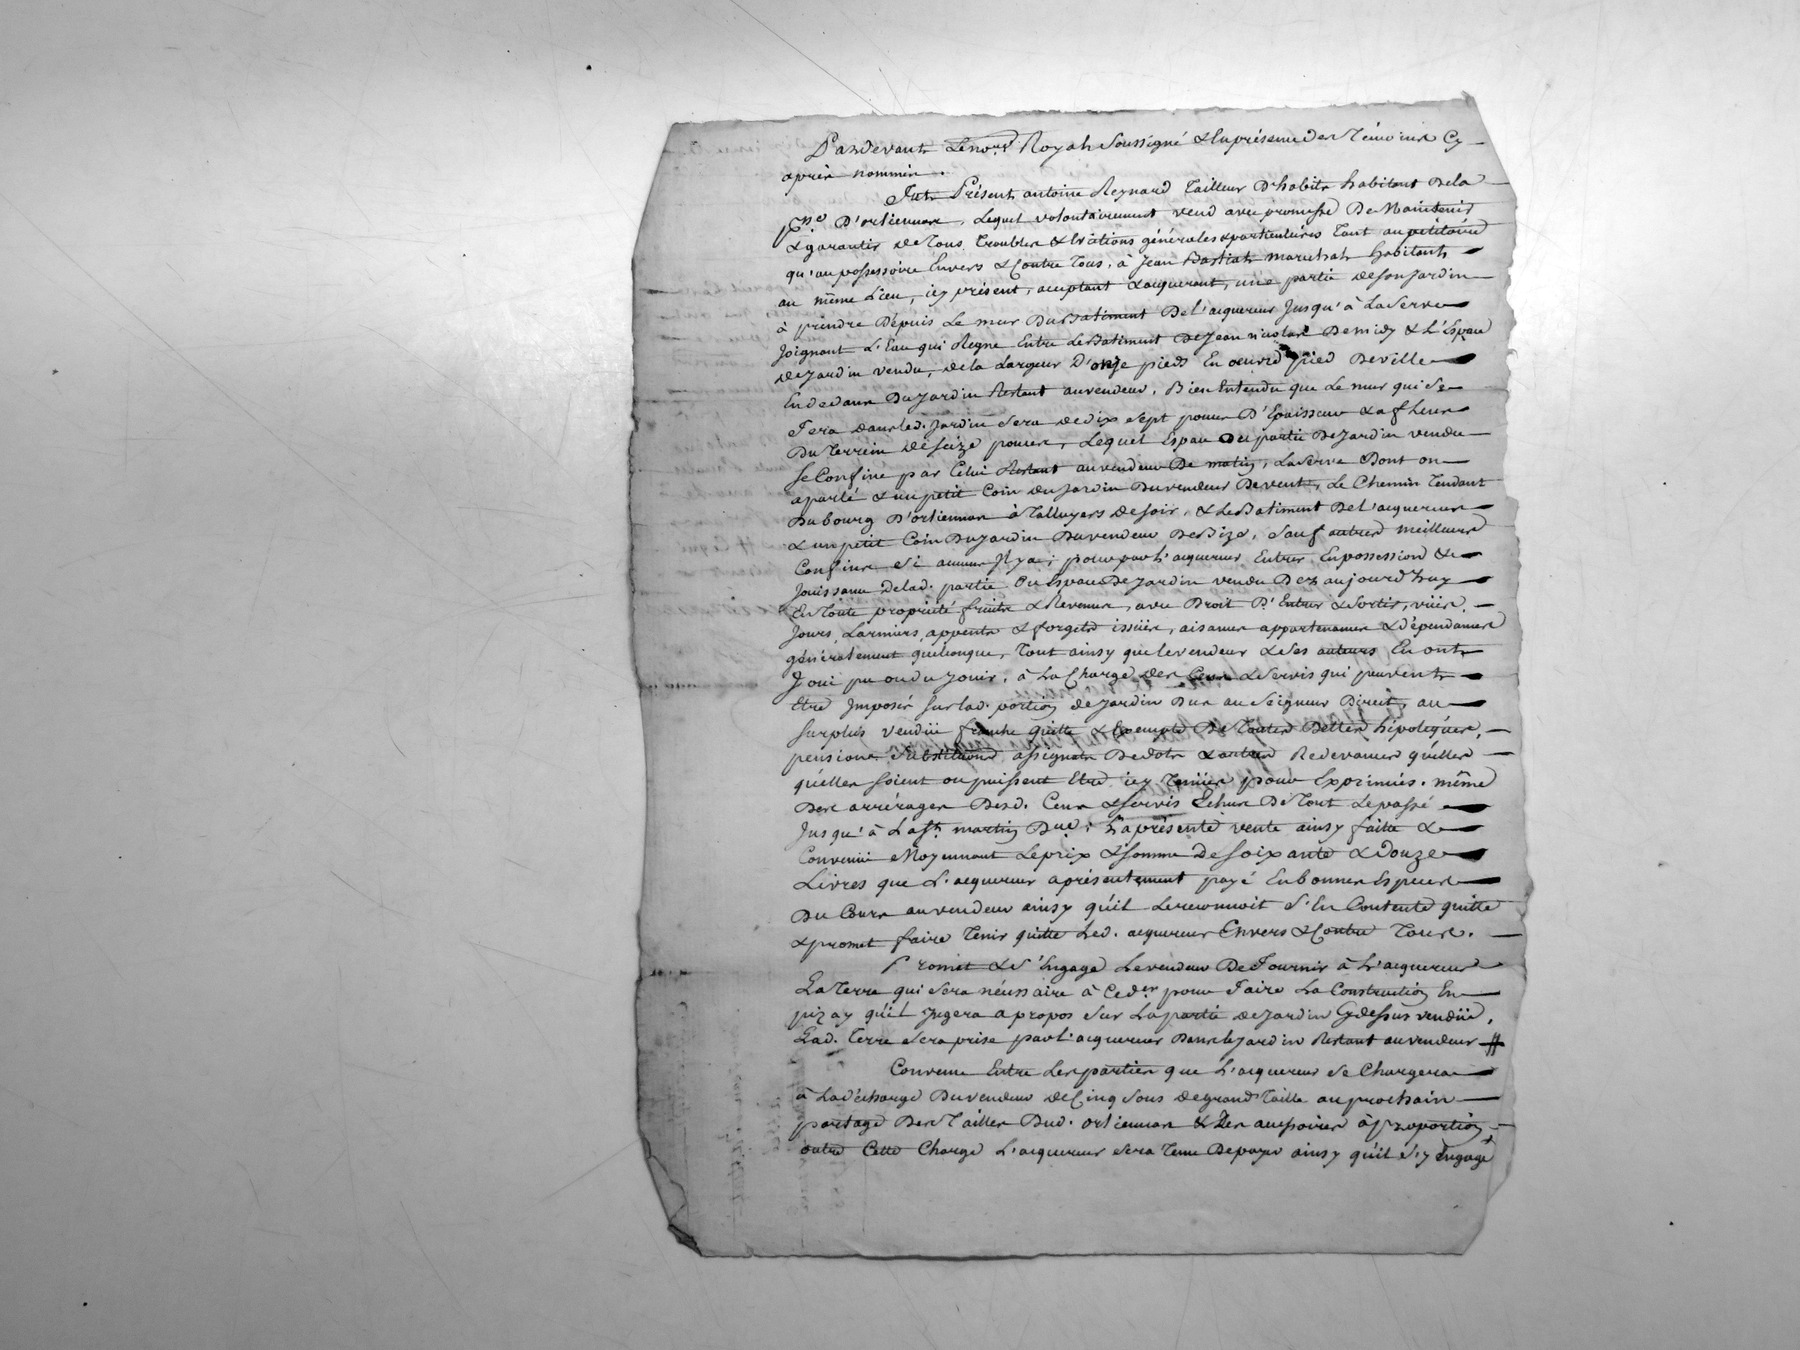 Pardevant Le no.re Royal Soussigné & En présence des Témoins Cy
après nommés.
Fut Présent antoine Reynard Tailleur D'habits habitant De la
p.sse D'orliennas, Lequel volontairement vend avec promesse De Maintenir
& garantir de Tous Troubles & Evictions générales & particulières Tant au petitoire
qu'au possessoire Envers & Contre Tous, à Jean Bastiat marechal habitant
au même Lieu, icy présent, acceptant & acquerant, une partie de son Jardin
à prendre Depuis Le mur Du Batiment De l'acquereur Jusqu'à La Serve
Joignant L'Eau qui Regne Entre Le Batiment De Jean nicolas De midy & L'Espace
de Jardin vendu, de la Largeur D'onze pieds En oeuvre pied De ville
En dedans Du Jardin Restant au vendeur, Bien Entendu que Le mur qui Se
Fera dans led. Jardin Sera de dix Sept pouces D'Epaisseur & a fleur
Du Terrein de Seize pouces, Lequel Espace ou partie De Jardin vendu
Se Confine par Celui Restant au vendeur De matin, La Serve Dont on
a parlé & un petit Coin du Jardin Du vendeur De vent, Le Chemin Tendant
Du bourg D'orliennas à Talluyers de soir, & Le Batiment De l'acquereur
& un petit Coin Du Jardin Du vendeur De Bize, Sauf autres meilleurs
Confins Si aucuns Il y a; pour par l'acquereur Entrer En possession &
Jouissance de lad. partie ou Espace De Jardin vendu Dez aujourd'huy
En Toute propriété fruits & Revenus, avec Droit D'Entrer & Sortir, vües,
Jours, Larmiers, appents & forgets issües, aisances appartenances & dépendances
généralement quelconque, Tout ainsy que le vendeur & Ses auteurs En ont
Joui pu ou du Jouir, à La Charge des Cens & Servis qui peuvent
Etre Imposés Sur lad. portion de Jardin Dus au Seigneur Direct, au
Surplus vendüe franche quitte & Exempte De Toutes Dettes hipotéques,
pensions Substitutions assignats De dots & autres Redevances qu'elles
qu'elles soient ou puissent Etre icy Tenües pour Exprimées. même
Des arrérages Desd. Cens & servis Echus De Tout Le passé
Jusqu'à La S.t martin D.re; La présente vente ainsy faite &
Convenüe Moyennant Le prix & Somme de Soixante & Douze
Livres que L'acquereur a présentement payé En bonnes Especes
Du Cours au vendeur ainsy qu'il Le reconnoit S'En Contente quitte
& promet faire Tenir quitte Led. acquereur Envers & Contre Tous.
Promet & S'Engage Le vendeur De Fournir à L'acquereur
La Terre qui Sera nécessaire à Ce d.er pour Faire La Construction En
pizay qu'il Jugera a propos Sur La partie de Jardin Cy dessus vendüe,
Lad. Terre Sera prise par l'acquereur Dans le Jardin Restant au vendeur #
Convenu Entre Les parties que L'acquereur Se Chargera
à La décharge Du vendeur de Cinq Sous de grand Taille au prochain
partage Des Tailles Dud. orliennas & Les accessoires à proportion,
outre Cette Charge L'acquereur Sera Tenu De payer ainsy qu'il S'y Engage